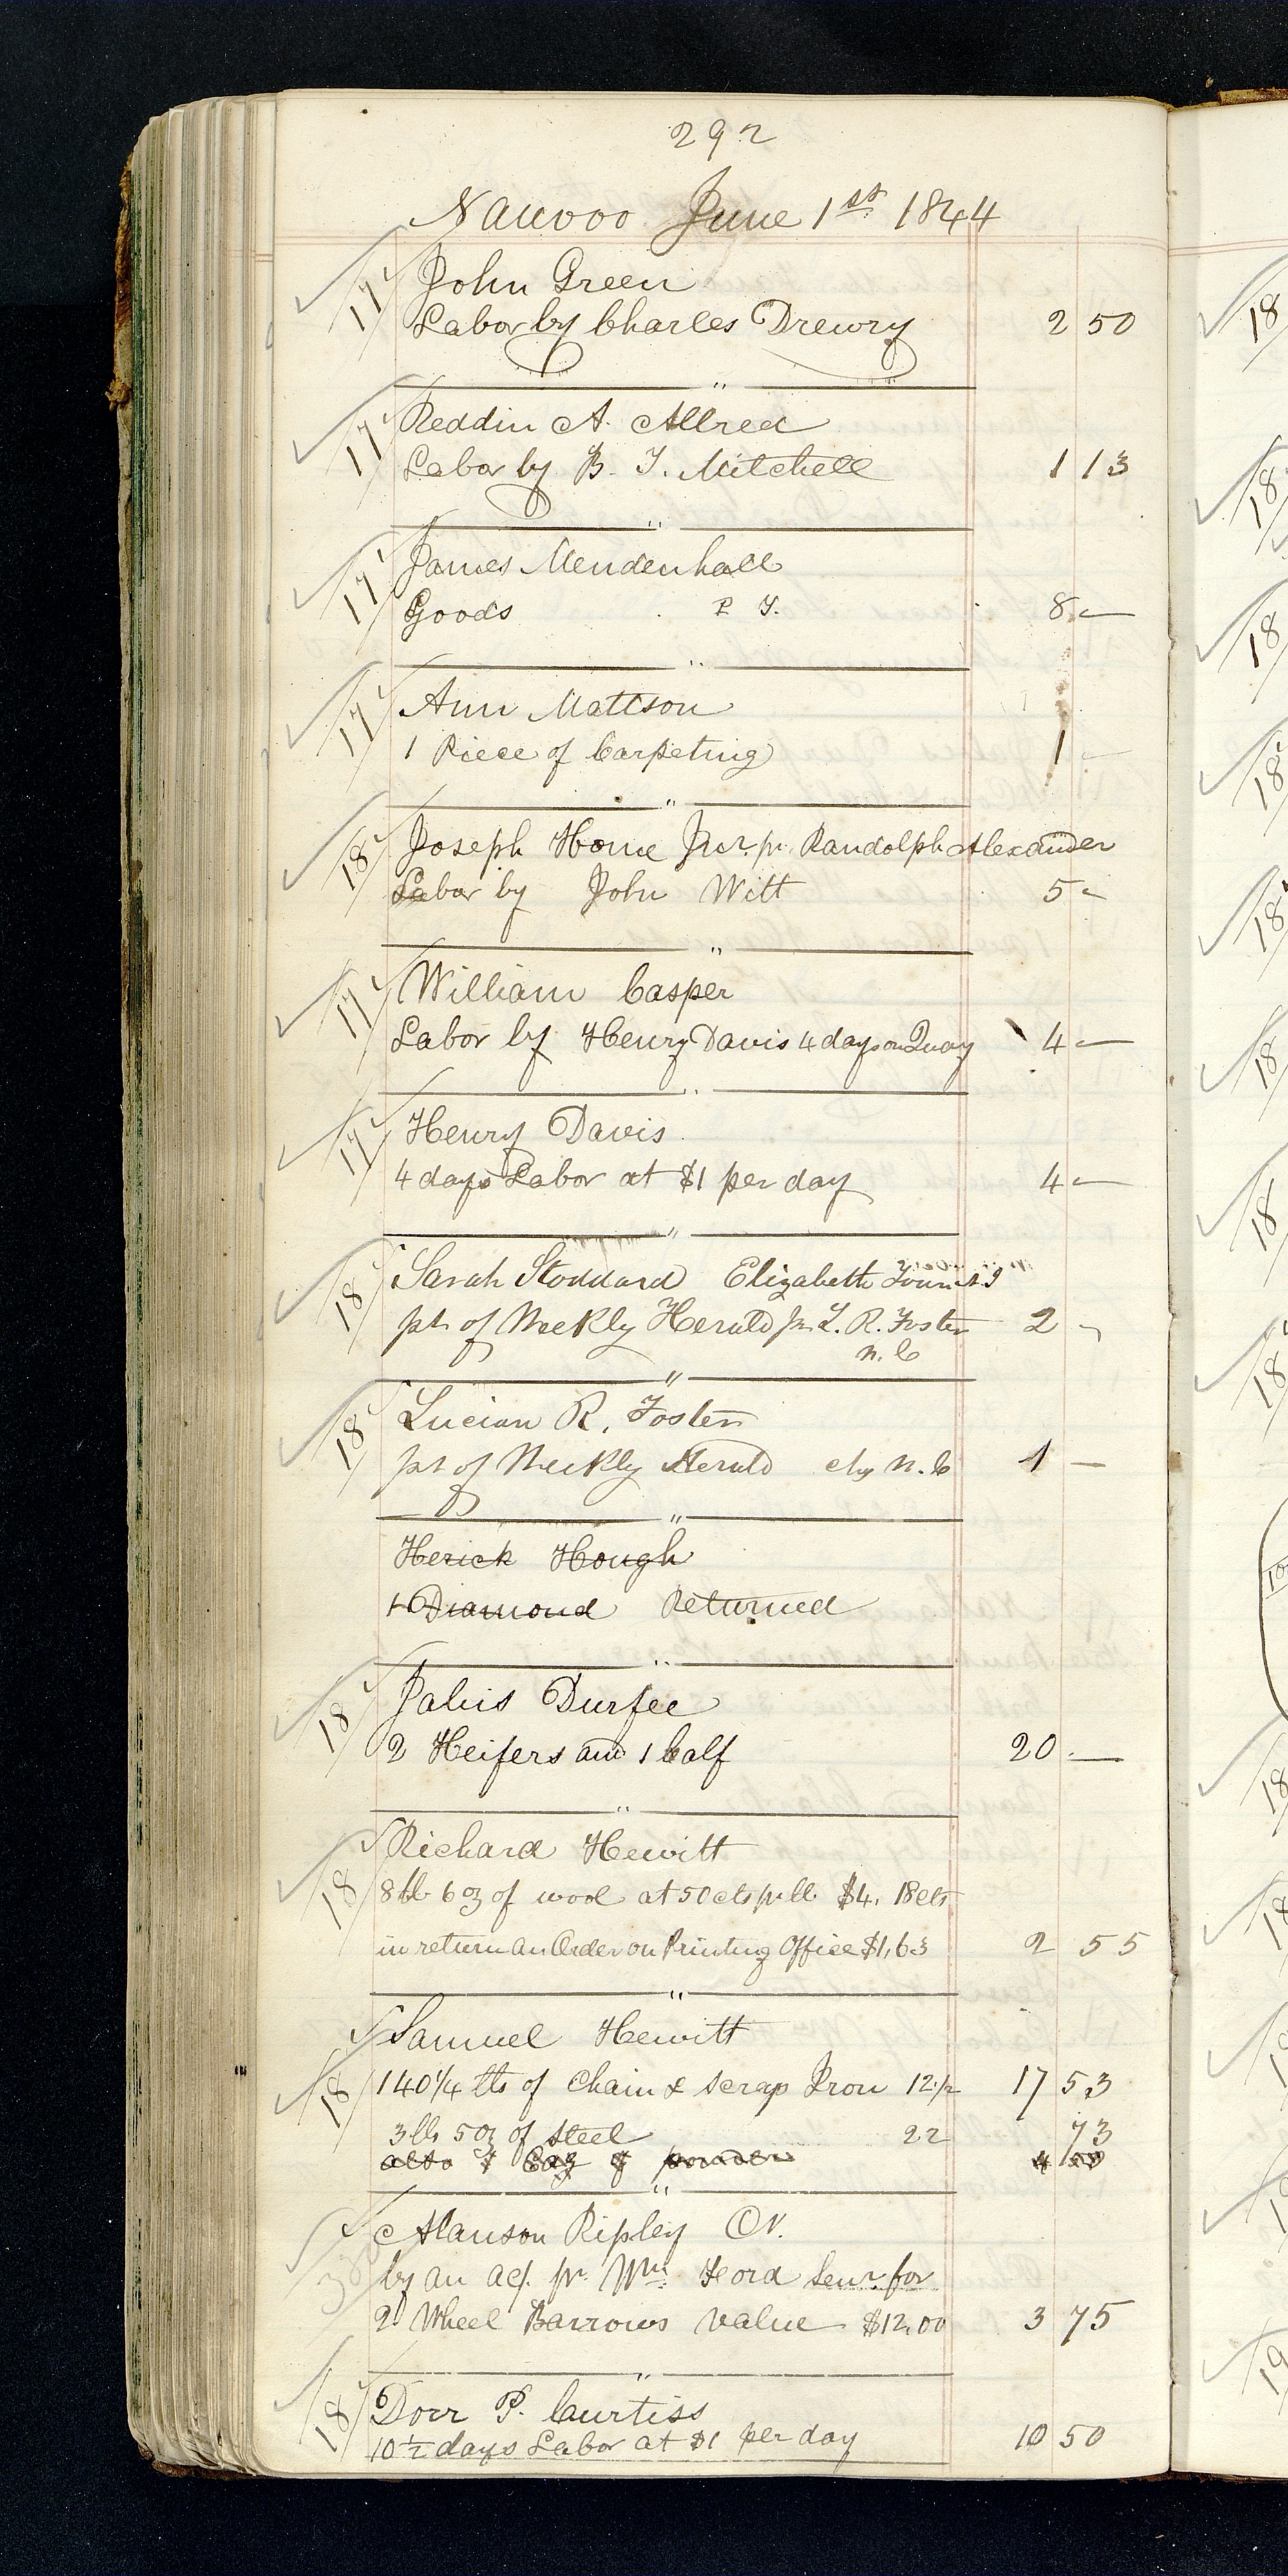 292
Nauvoo June 1st 1844
17 John Green
Labor by Charles Drewry 2 50
"
17 Reddin A. Allred
Labor by B. T. Mitchell 1 13
"
17 James Mendenhall
Goods P T. 8 —
"
17 Ann Mattson
1 Piece of Carpeting 1 -
"
18 Joseph Horne Jnr. pr. Randolph Alexander
Labor by John Witt 5 -
"
17 William Casper
Labor by Henry Davis 4 days on Quay 4 —
"
17 Henry Davis
4 days Labor at $1 per day 4 —
"
18 Sarah Stoddard Elizabeth
pt. of Weekly Herald pr L. R. Foster 2 -
n. C
"
18 Lucian R. Foster
pt of Weekly Herald chg N. C 1 —
"
Herick Hough
1 Diamond Returned
"
18 Jabis Durfee
2 Heifers and 1 Calf 20 —
"
18 Richard Hewitt
8 lb 6 oz of wool at 50 cts pr lb $4. 18 cts
in return an Order on Printing Office $1,63 2 55
"
Samuel Hewitt
18 140 1/4 lbs of Chain & scrap Iron 12 1/2 17 53
3 lb 5 oz of steel 22 73
also 1 Cag of powder 4 50
"
38 Alanson Ripley Cr.
by an acf. pr. Wm. Ford Senr. for
2 Wheel Barrows value $12,00 3 75
"
18 Dorr P. Curtiss
10 1/2 days Labor at $1 per day 10 50
18
18
18
18
18
18
18
18
18
18
19